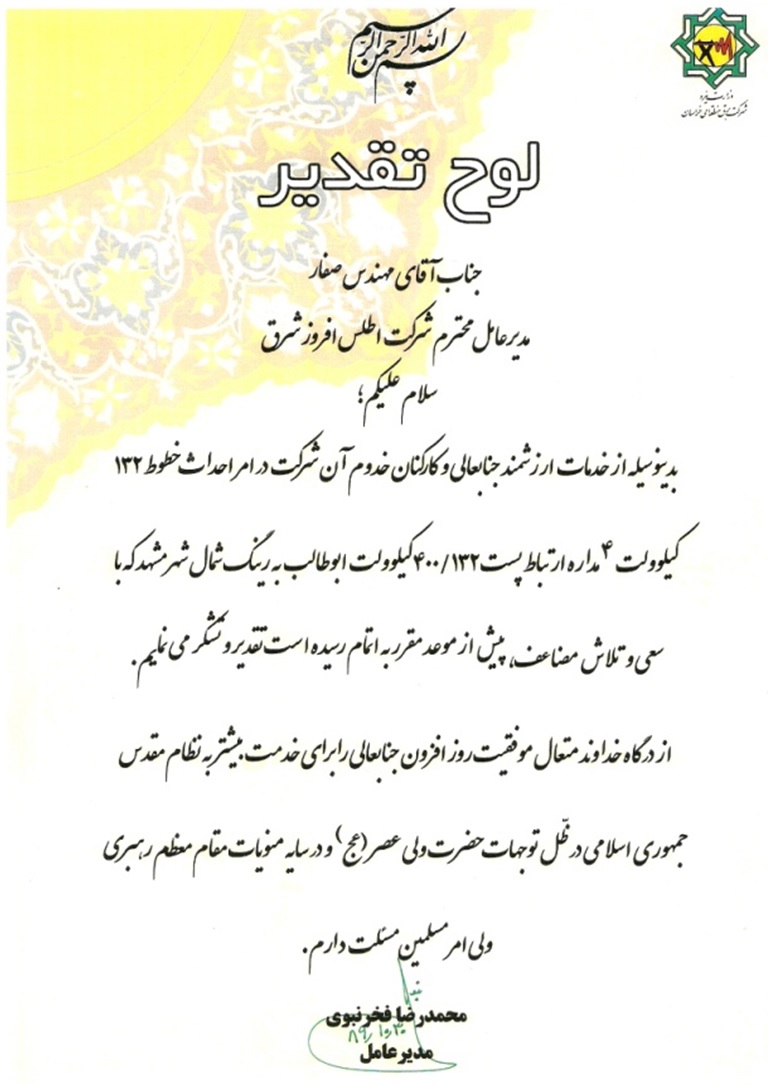 بسم الله الرحمن الرحیم
وزارت نیرو
شرکت برق منطقه‌ای خراسان
لوح تقدیر
جناب آقای مهندس صفار
مدیرعامل محترم شرکت اطلس افروز شرق
سلام علیکم؛
بدینوسیله از خدمات ارزشمند جنابعالی و کارکنان خدوم آن شرکت در امر احداث خطوط ۱۳۲
کیلوولت ۴ مداره ارتباط پست ۴۰۰/۱۳۲ کیلوولت ابوطالب به رینگ شمال شهر مشهد که با
سعی و تلاش مضاعف، پیش از موعد مقرر به اتمام رسیده است تقدیر و تشکر می نمایم.
از درگاه خداوند متعال موفقیت روز افزون جنابعالی را برای خدمت بیشتر به نظام مقدس
جمهوری اسلامی در ظّل توجهات حضرت ولی عصر (عج) و در سایه منویات مقام معظم رهبری
ولی امر مسلمین مسئلت دارم.
محمدرضا فخرنبوی
مدیرعامل